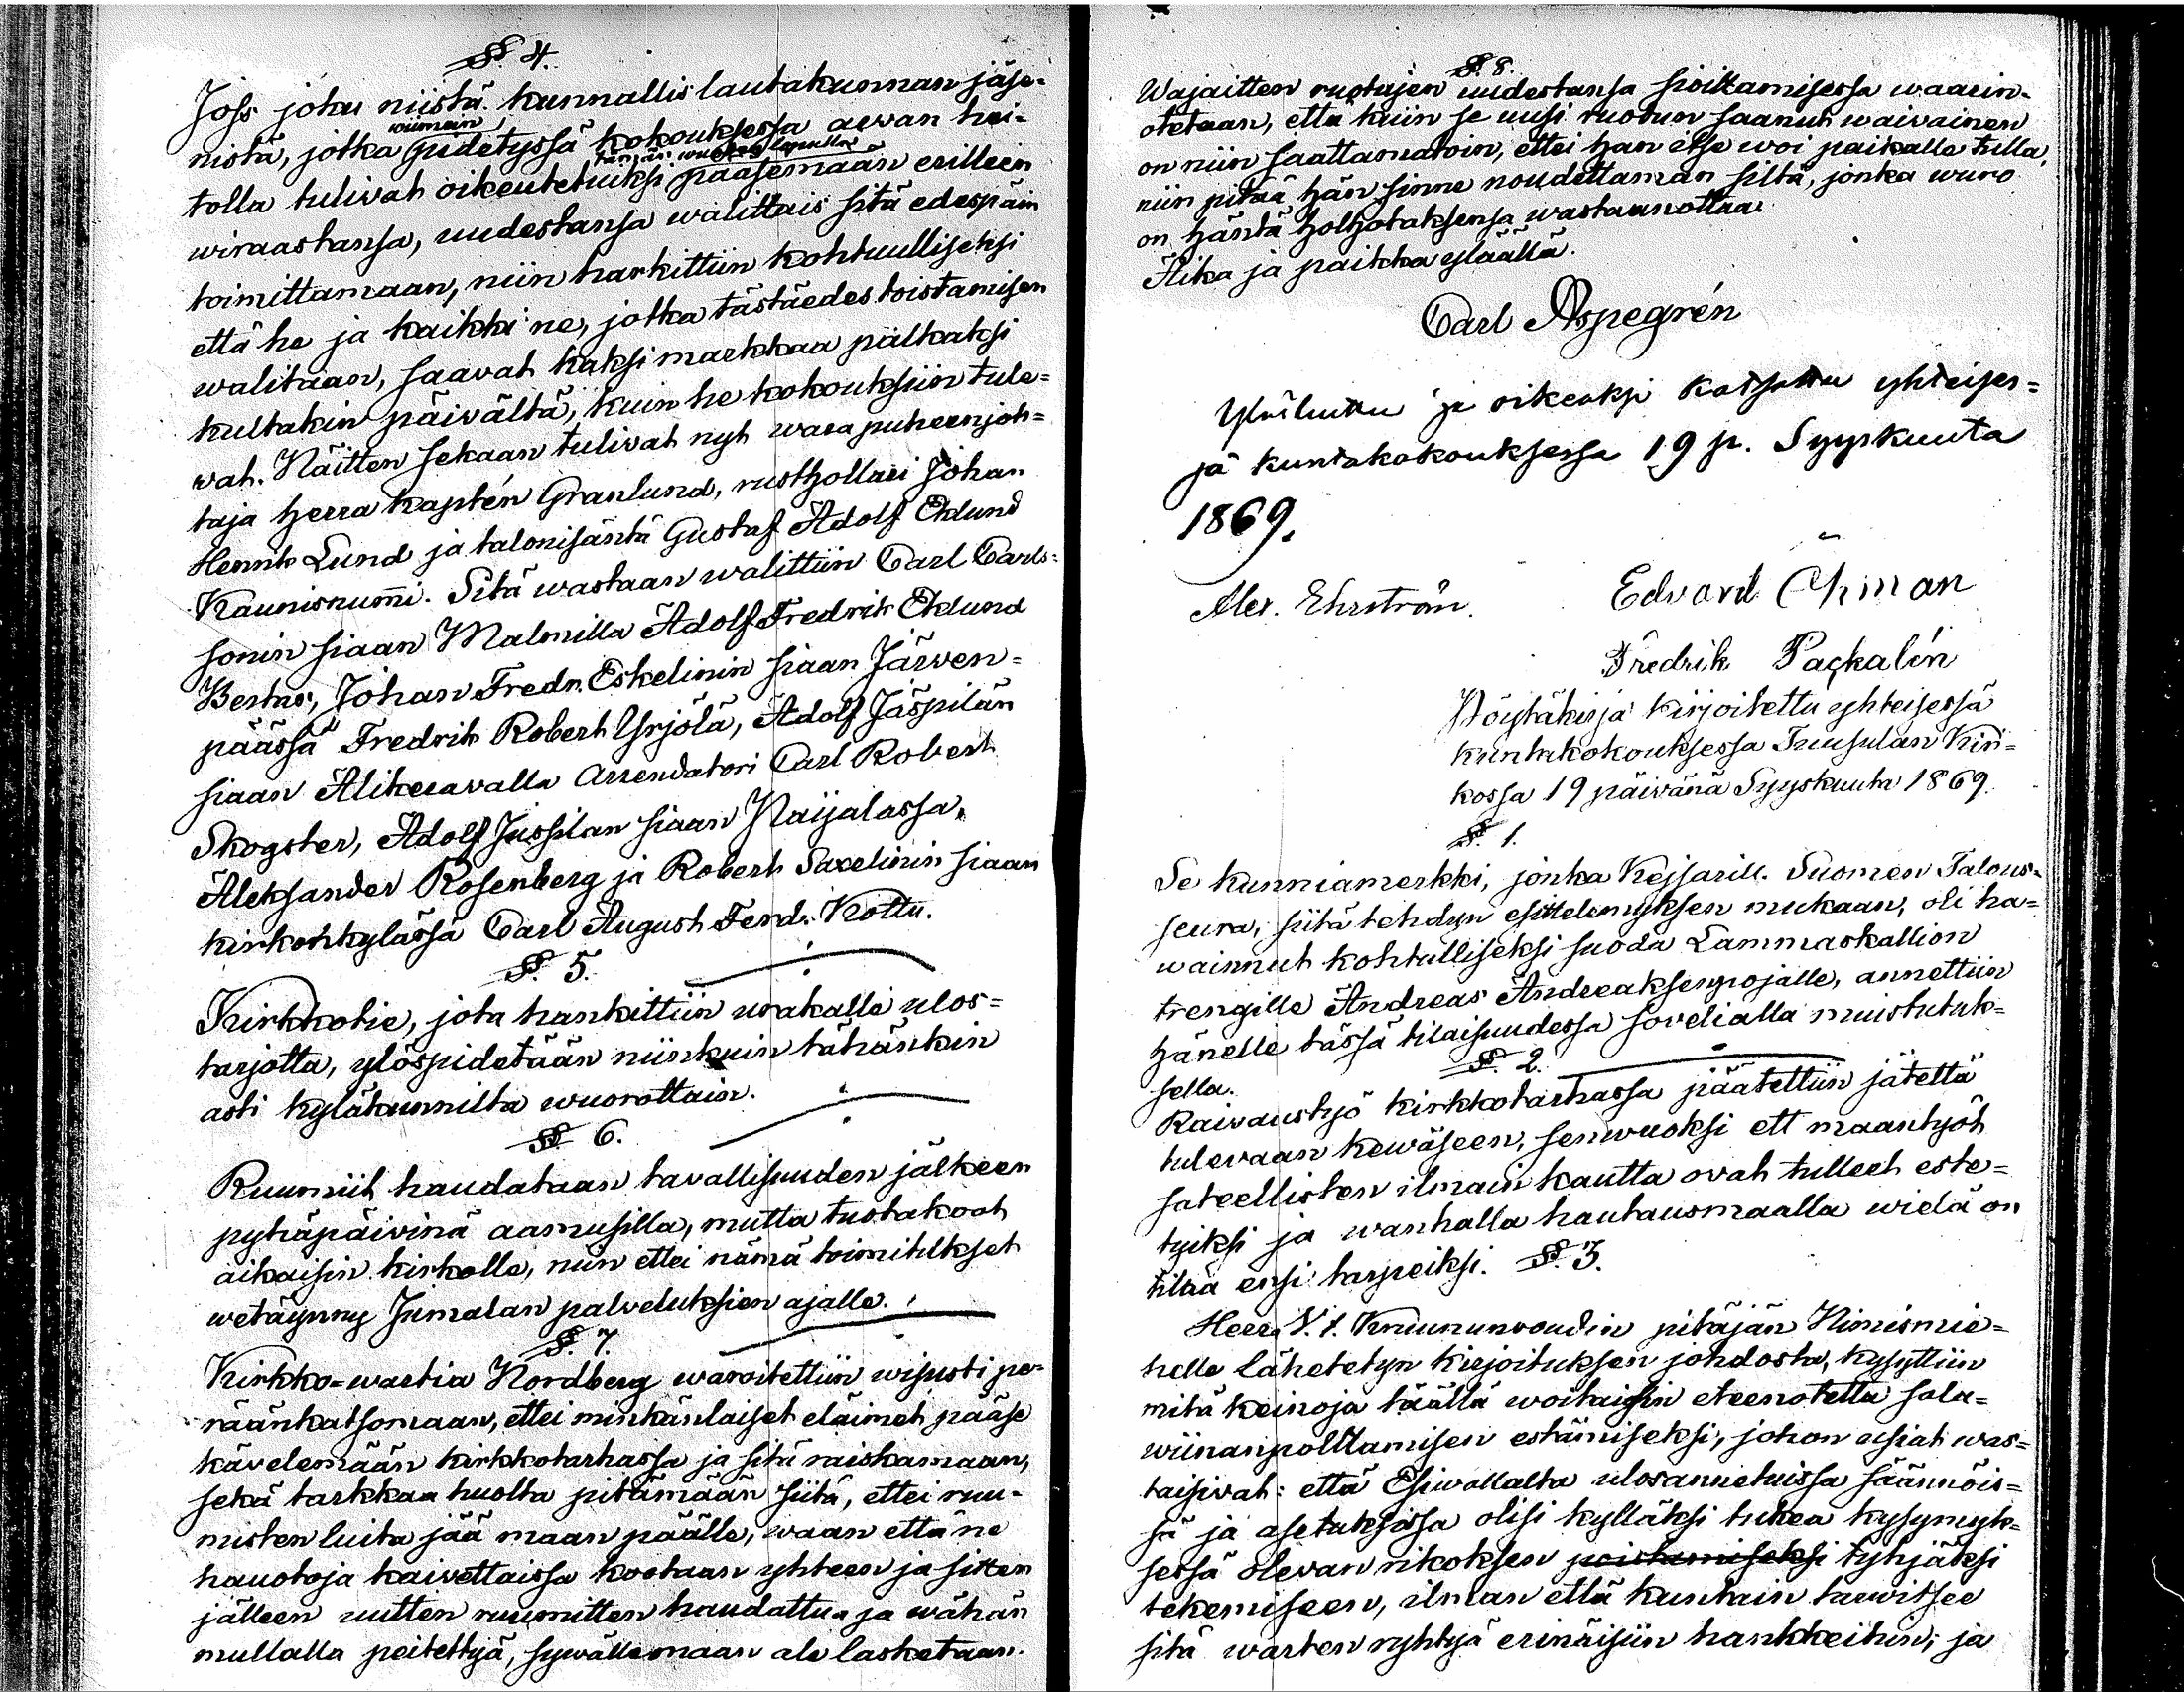 §. 4.
Joss joku niistä kunnallislautakunnan jäse-
nistä, jotka wiimein pidetyssä kokouksessa arwan hei-
tolla tulivat oikeutetuiksi tämän wuoden lopulla pääsemään erilleen
wiraastansa, uudestansa walittais sitä edespäin
toimittamaan, niin harkittiin kohtuulliseksi
että he ja kaikki ne, jotka tästäedes toistamisen
walitaan, saavat kaksi markkaa palkaksi
kultakin päivältä, kuin he kokouksiin tule-
wat. Näitten sekaan tulivat nyt wara puheenjoh-
taja herra kaptén Granlund, rusthollari Johan
Henrik Lund ja talonisäntä Gustaf Adolf Eklund
Kaunisnumi. Sitä wastaan walittiin Carl Carls-
sonin siaan Malmilla Adolf Fredrik Eklund
Bertas, Johan Fredr. Eskelinin siaan Järwen-
päässä Fredrik Robert Yrjölä, Adolf Jäspilän
siaan Alikeravalla arrendatori Carl Robert
Skogster, Adolf Jussilan siaan Paijalassa,
Aleksander Rosenberg ja Robert Saxelinin siaan
kirkonkylässä Carl August Ferd. Kottu.
§. 5.
Kirkkotie, jota hankittiin urakalle ulos-
tarjotta, ylöspidetään niinkuin tähänkin
asti kyläkunnilta wuorottain.
§. 6.
Ruumiit haudataan tavallisuuden jälkeen
pyhäpäivinä aamusilla, mutta tustakoot
aikaisin kirkolle, niin ettei nämä toimitukset
wetäynny Jumalan palveluksien ajalle.
§. 7.
Kirkko-wartia Nordberg waroitettiin wisusti pe-
räänkatsomaan, ettei minkänlaiset eläimet pääse
kävelemään kirkkotarhassa ja sitä raiskamaan,
sekä tarkkaa huolta pitämään siitä, ettei ruu-
misten luita jää maan päälle, waan että ne
hautoja kaivettaissa kootaan yhteen ja sitten
jälleen uutten ruumitten haudattua ja wähän
mullalla peitettyä, sywälle maan ala lasketaan.
§. 8.
Wajaitten ruotujen uudestansa sioittamisessa waarin-
otetaan, että kuin se uusi ruotun saanut waivainen
on niin saattamatoin, ettei hän itse woi paikalle tulla,
niin pitää hän sinne noudettaman siltä, jonka wuoro
on häntä holhotaksensa wastaanottaa.
Aika ja paikka ylaällä.
Carl Aspegrén
Ylösluettu ja oikeaksi katsottu yhteises-
sä kuntakokouksessa 19 p. Syyskuuta
1869.
Alex. Ehrström.
Edvard Öhman
Fredrik Paçkalén
Pöytäkirja kirjoitettu yhteisessä
kuntakokouksessa Tuusulan Kirk-
kossa 19 päivänä Syyskuuta 1869.
§. 1.
Se kunniamerkki, jonka Kejsarill. Suomen Talous-
seura, siitä tehdyn esittelemyksen mukaan, oli ha-
wainnut kohtulliseksi suoda Lammaskallion
trengille Andreas Andreaksenpojalle, annettiin
hänelle tässä tilaisuudessa sovelialla muistutuk-
sella.
§. 2.
Raivaustyö kirkkotarhassa päätettiin jätettä
tulevaan kewäseen, senwuoksi ett maantyöt
sateellisten ilmain kautta ovat tulleet este-
tyiksi ja wanhalla hautausmaalla wielä on
tilaa ensi tarpeiksi. §. 3.
Herra V. t. Kruununwoudin pitäjän Nimismie-
helle lähetetyn kirjoituksen johdosta, kysyttiin
mitä keinoja täällä woitaisiin eteenotetta sala-
wiinanpolttamisen estämiseksi, johon asiat was-
taisivat: että Esiwallalta ulosannetuissa säännöis-
sä ja asetuksissa olisi kylläksi tukea kysymyk-
sessä olevan rikoksen poistamiseksi tyhjäksi
tekemiseen, ilman että kuntain tarwitsee
sitä warten ryhtyä erinäisiin hankkeihin; ja